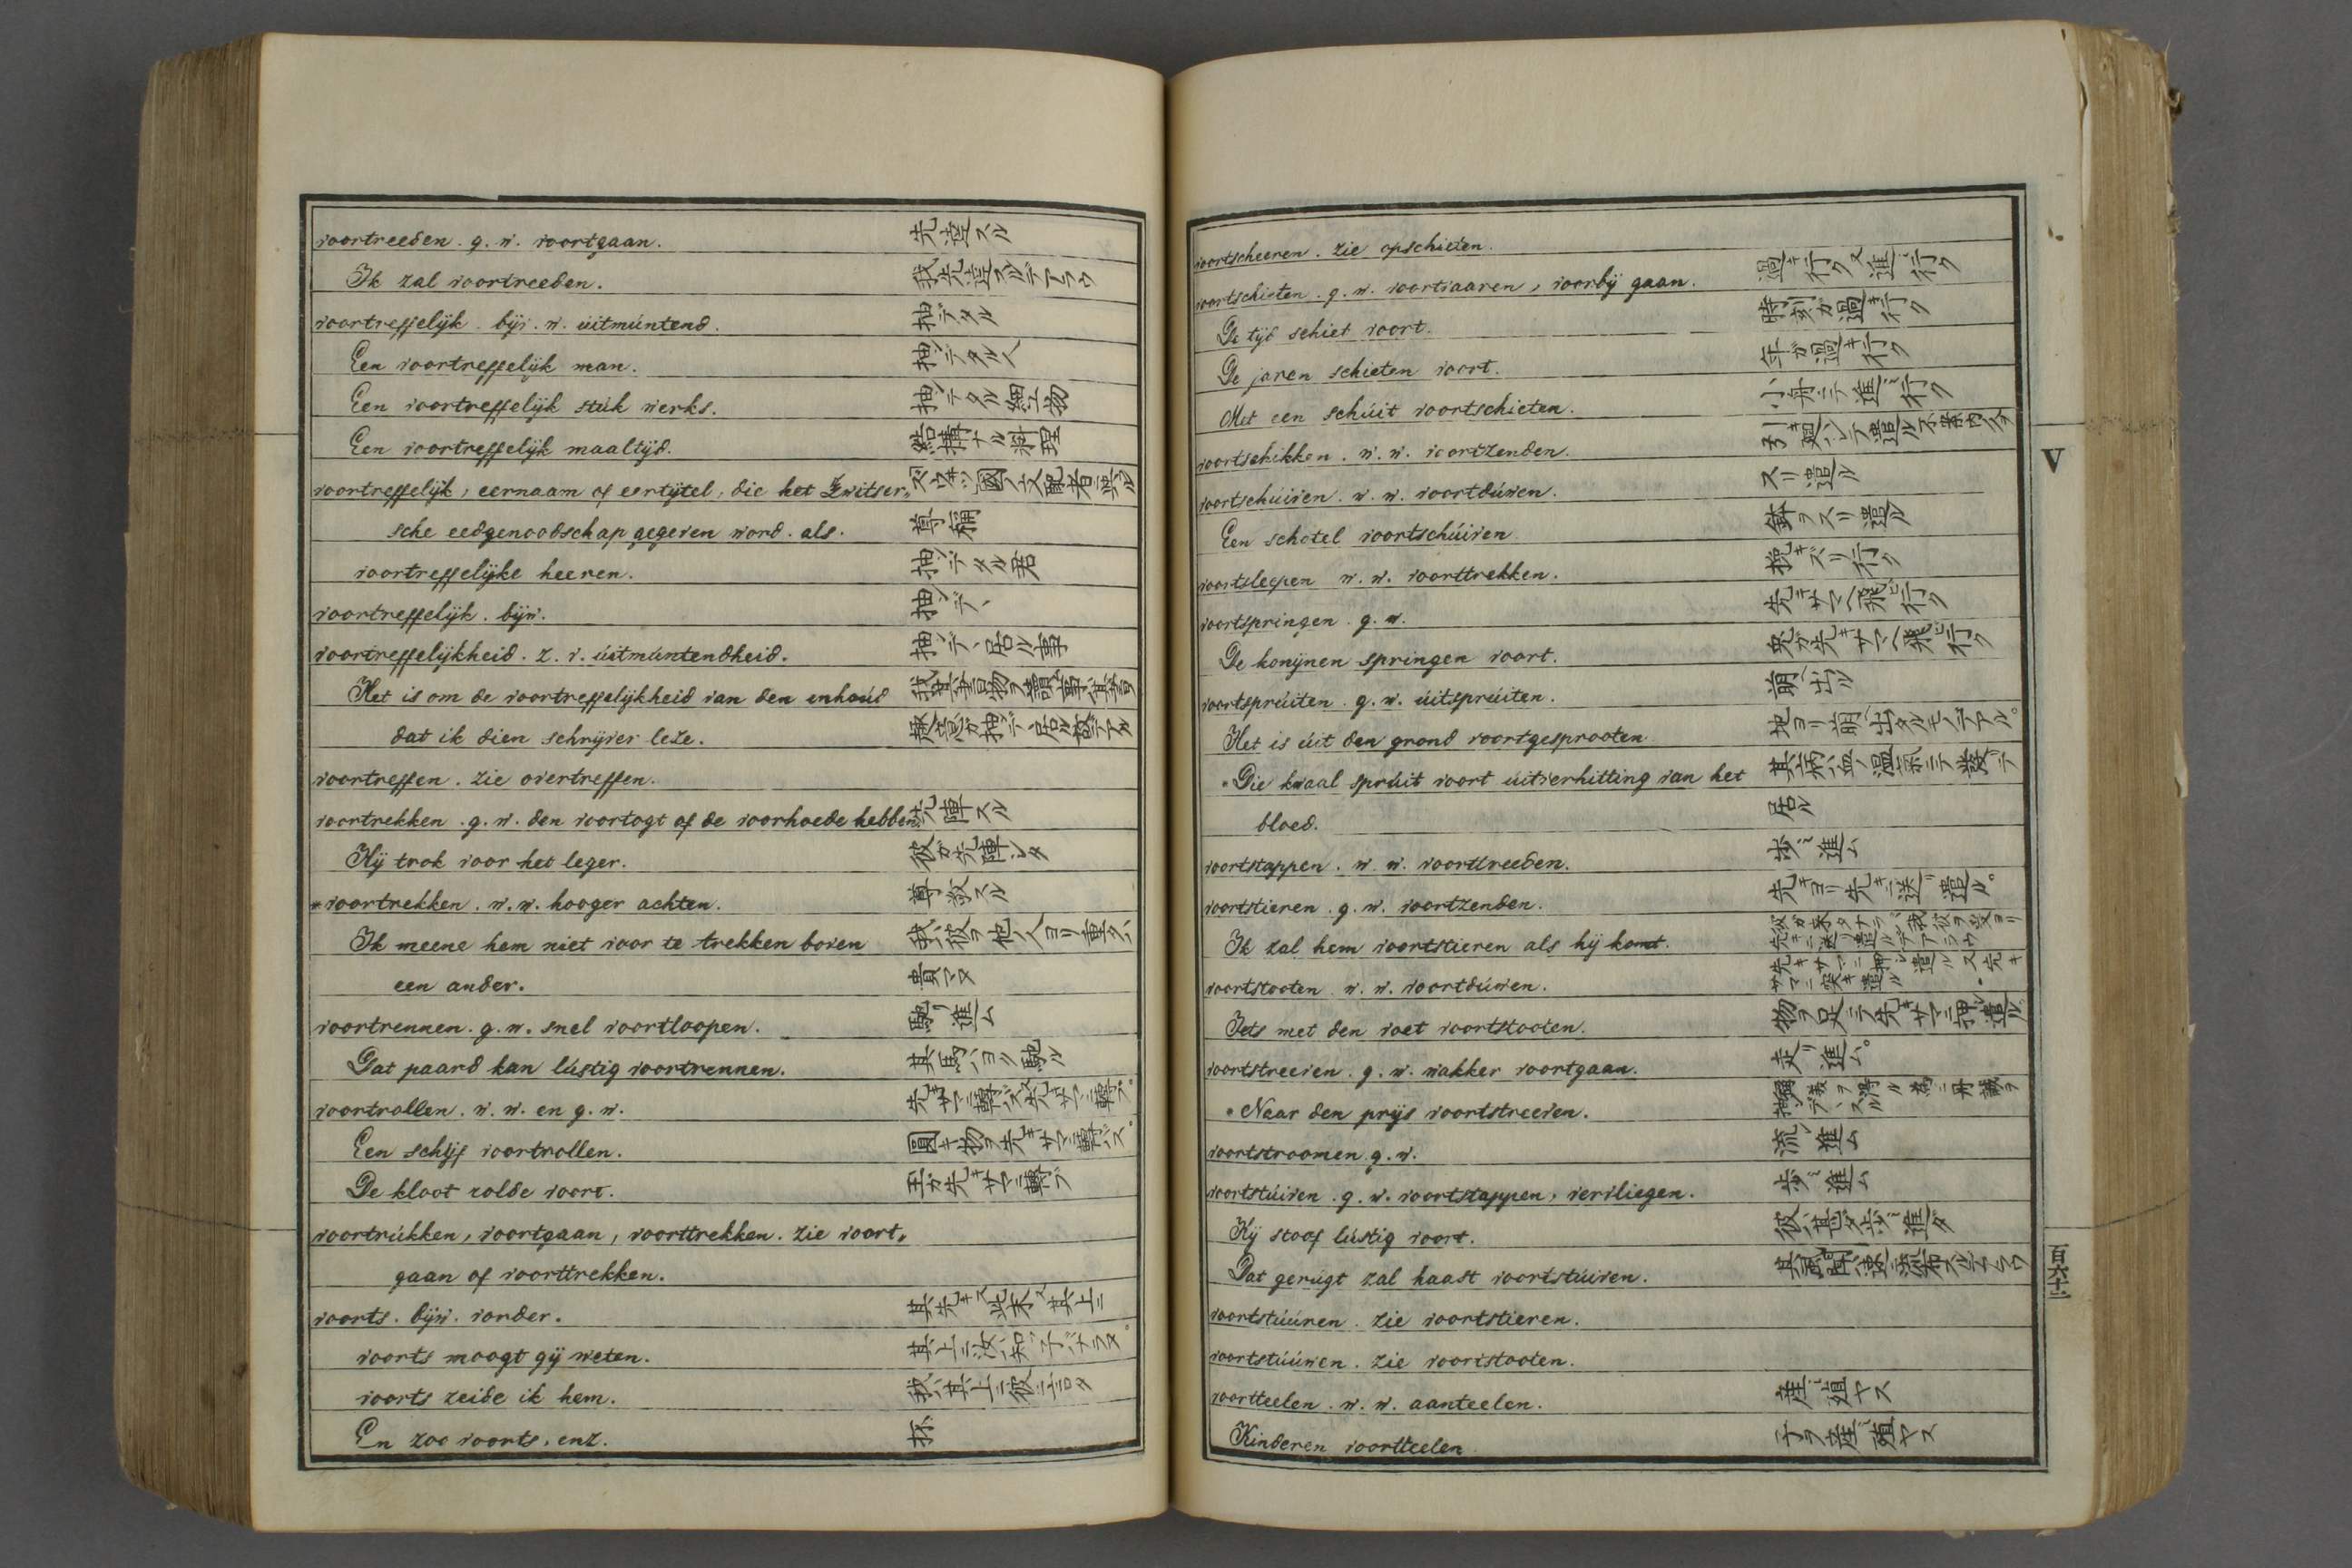 voortreeden. g. w. voortgaan. 先達スル
Ik zal voortreeden. 我先達スルデアラウ
voortreffelijk. bijv. w. úitmúntend. 抽デタル
Een voortreffelijk man. 抽デタル人
Een voortreffelijk stúk werks. 抽デタル細工物
Een voortreffelijk maaltijd. 結構ナル料理
voortreffelijk, eernaam of eertijtel, die het Zwitser„
sche eedgenoodschap gegeven word. als. 尊稱
voortreffelijke heeren. 抽デタル君
voortreffelijk. bijw. 抽デヽ
voortreffelijkheid. z. v. úitmúntendheid. 抽デヽ居ル事
Het is om de voortreffelijkheid van den enhoúd
dat ik dien schrijver leze.
voortreffen. zie overtreffen.
voortrekken. g. w. den voortogt of de voorhoede hebben. 先陣スル
Hij trok voor het leger. 彼ガ先陣シタ
*voortrekken. w. w. hooger achten. 尊敬スル
Ik meene hem niet voor te trekken boven 我ハ彼ヲ他ノ人ヨリ重クハ
een ander. 貴マヌ
voortrennen. g. w. snel voortloopen. 馳リ進ム
Dat paard kan lústig voortrennen. 其馬ハヨク馳ル
voortrollen. w. w. en g. w. 先キサマニ轉バス又先キサマニ轉ブ。
Een schijf voortrollen. 圓キ物ヲ先キサマニ轉バス。
De kloot rolde voort. 玉ガ先キサマニ轉ブ
voortrúkken, voortgaan, voorttrekken. zie voort„
gaan of voorttrekken.
voorts. bijw. vorder. 其先キ又此末又其上ニ
voorts moogt gij weten.
voorts zeide ik hem. 我ハ其上ニ彼ニ言タ
En zoo voorts, enz. 抔
voortscheeren. zie opschieten.
voortschieten. g. w. voortvaaren, voorbij gaan. 過キ行ク又進ミ行ク
De tijd schiet voort. 時刻ガ過キ行ク
De jaren schieten voort. 年ガ過キ行ク
Met een schúit voortschieten. 小舟ニテ進ミ行ク
voortschikken. w. w. voortzenden.
voortschúiven. w. w. voortdúwen. スリ遣ル
Een schotel voortschúiven 鉢ヲスリ遣ル
voortsleepen w. w. voorttrekken. 抴キズリ行ク
voortspringen. g. w. 先キサマヘ飛ビ行ク
De konijnen springen voort. 兎ガ先キサマヘ飛ビ行ク
voortsprúiten. g. w. úitsprúiten. 萠ヘ出ル
Het is úit den grond voortgesprooten 地ヨリ萠ヘ出タルモノデアル。
*Die kwaal sprúit voort úitverhitting van het 其病ハ血ノ温氣ニテ發リテ
bloed. 居ル
voortstappen. w. w. voorttreeden. 歩ミ進ム
voortstieren. g. w. voortzenden. 先キヨリ先キニ送リ遣ル。
Ik zal hem voortstieren als hij komt. 彼ガ來タナラバ我彼ヲ爰ヨリ先キニ送リ遣ルデアラウ
voortstooten. w. w. voortdúwen. 先キサマニ押シ遣ル又先キサマニ突キ遣ル
Iets met den voet voortstooten. 物ヲ足ニテ先キサマニ押シ遣ル
voortstreeven. g. w. wakker voortgaan. 走リ進ム。
*Naar den prijs voortstreeven.
voortstroomen. g. w. 流レ進ム
voortstúiven. g. w. voortstappen, vervliegen. 歩ミ進ム
Hij stoof lústig voort. 彼ハ甚ダ歩ミ進ダ
Dat gerúgt zal haast voortstúiven. 其風聞ハ速ニ流布スルデアラウ
voortstúúren. zie voortstieren.
voortstúúwen. zie voortstooten.
voortteelen. w. w. aanteelen. 産ミ殖ヤス
Kinderen voortteelen 子ヲ産ミ殖ヤス
V